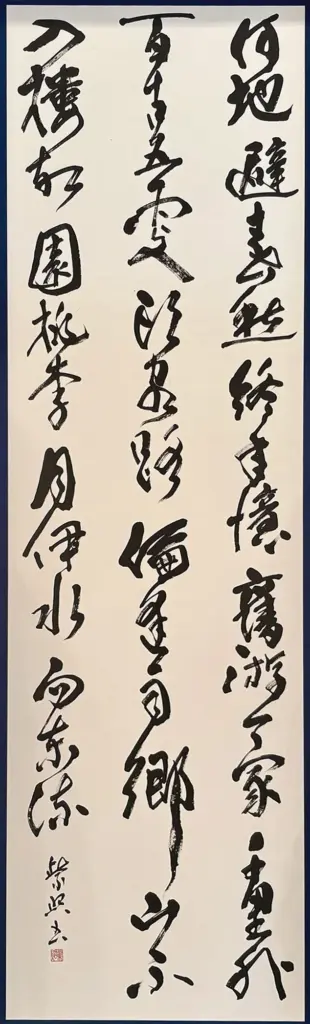 何地避春愁終年憶舊游一家千里外
百舌五更頭客路偏逢雨鄉山不
入樓故園桃李月伊水向東流
書